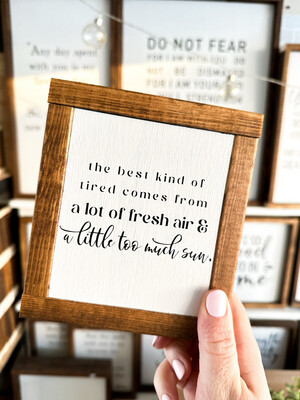 Any day spend
with you is my
DO NOT FEAR
FOR I AM WITH YOU OR
NOT BE DISMAYED
FOR I AM YOUR
the best kind of
tired comes from
a lot of fresh air &
a little too much sun.